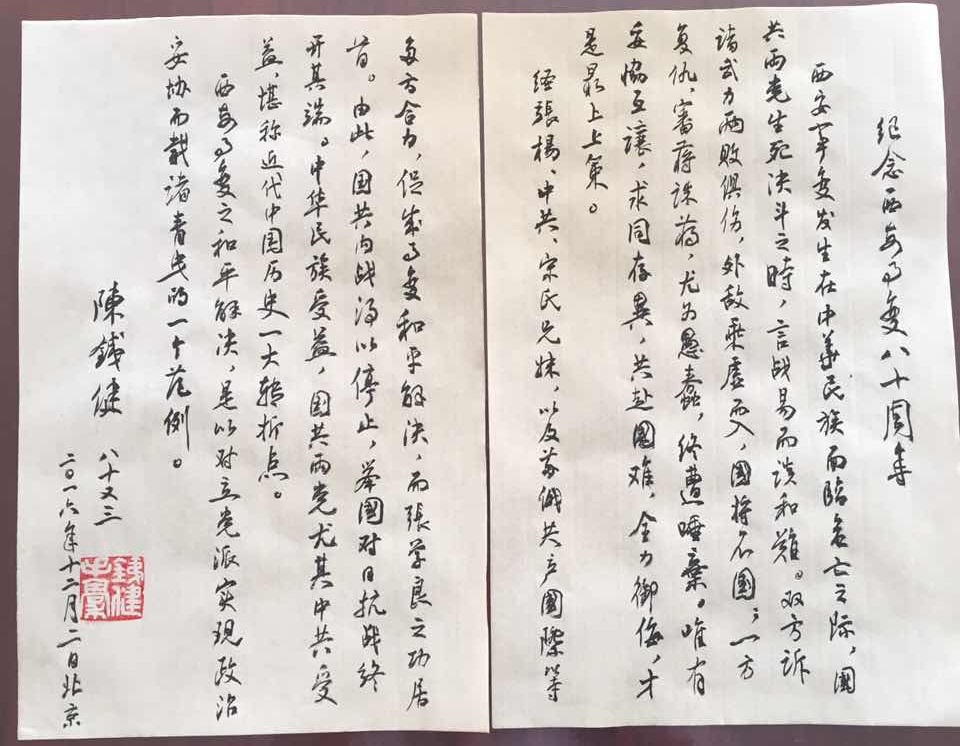 纪念西安事变八十周年
西安事变发生在中華民族面臨危亡之际，國
共两党生死决斗之時，言战易而谈和難。双方訴
诸武力两败俱伤，外敌乘虚而入，國将不國；一方
复仇，審蒋誅蒋，尤为愚蠢，终遭唾棄。唯有
妥協互讓，求同存異，共赴國难，全力御侮，才
是最上上策。
经張楊、中共、宋氏兄妹，以及苏俄共产國際等
多方合力，促成事变和平解决，而張学良之功居
首。由此，国共内战得以停止，举國对日抗战终
开其端。中华民族受益，国共两党尤其中共受
益，堪称近代中国历史一大转折点。
西安事变之和平解决，是以对立党派实现政治
妥协而载诸青史的一个范例。
陳鐵健 八十又三
二〇一六年十二月二日北京